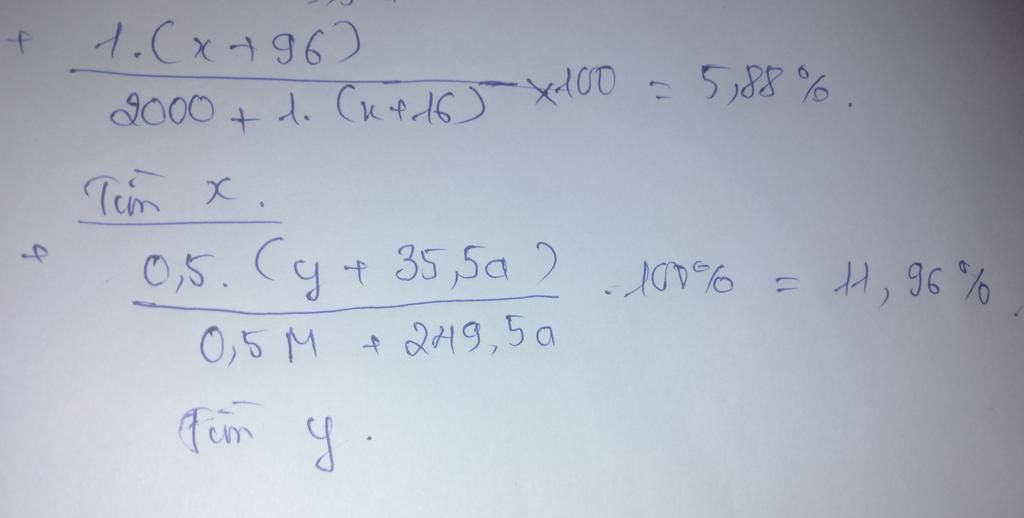 + 1.(x+96) / 2000 + 1.(x+16) ×100 = 5,88%.
Tìm x.
+ 0,5.(y + 35,5a) / 0,5M + 249,5a .100% = 11,96%
Tìm y.